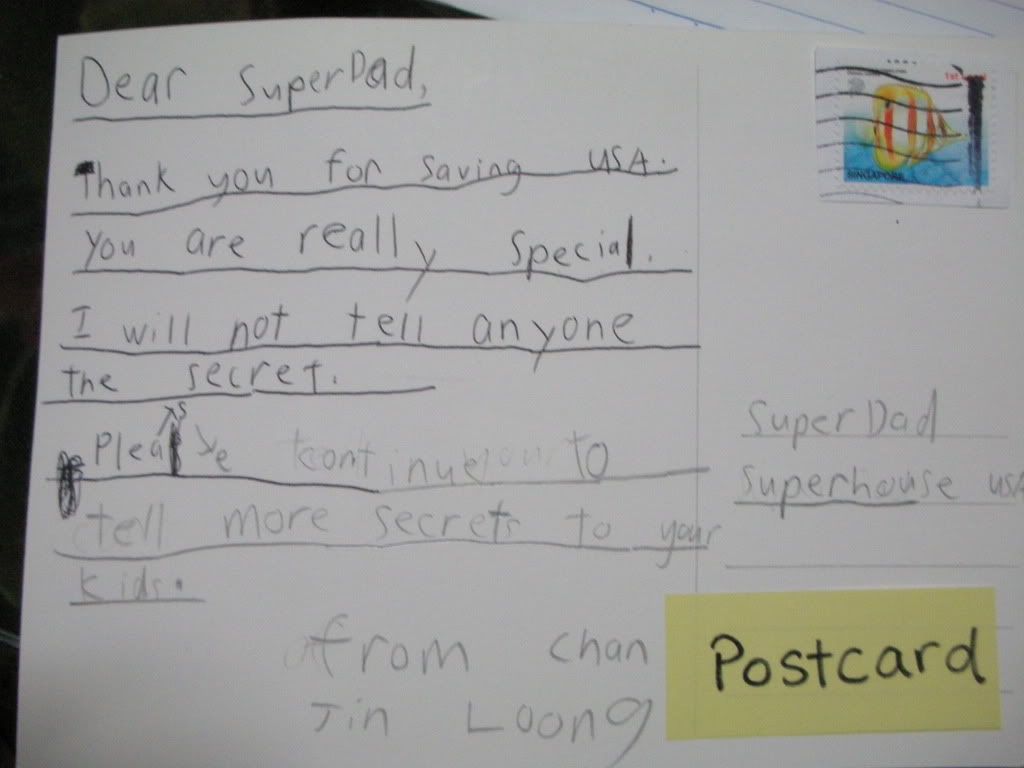 Dear SuperDad,
Thank you for saving USA.
You are really special.
I will not tell anyone
the secret.
Please continue to
tell more secrets to your
kids.
from Chan
Jin Loong
1st
SINGAPORE
SuperDad
Superhouse USA
Postcard